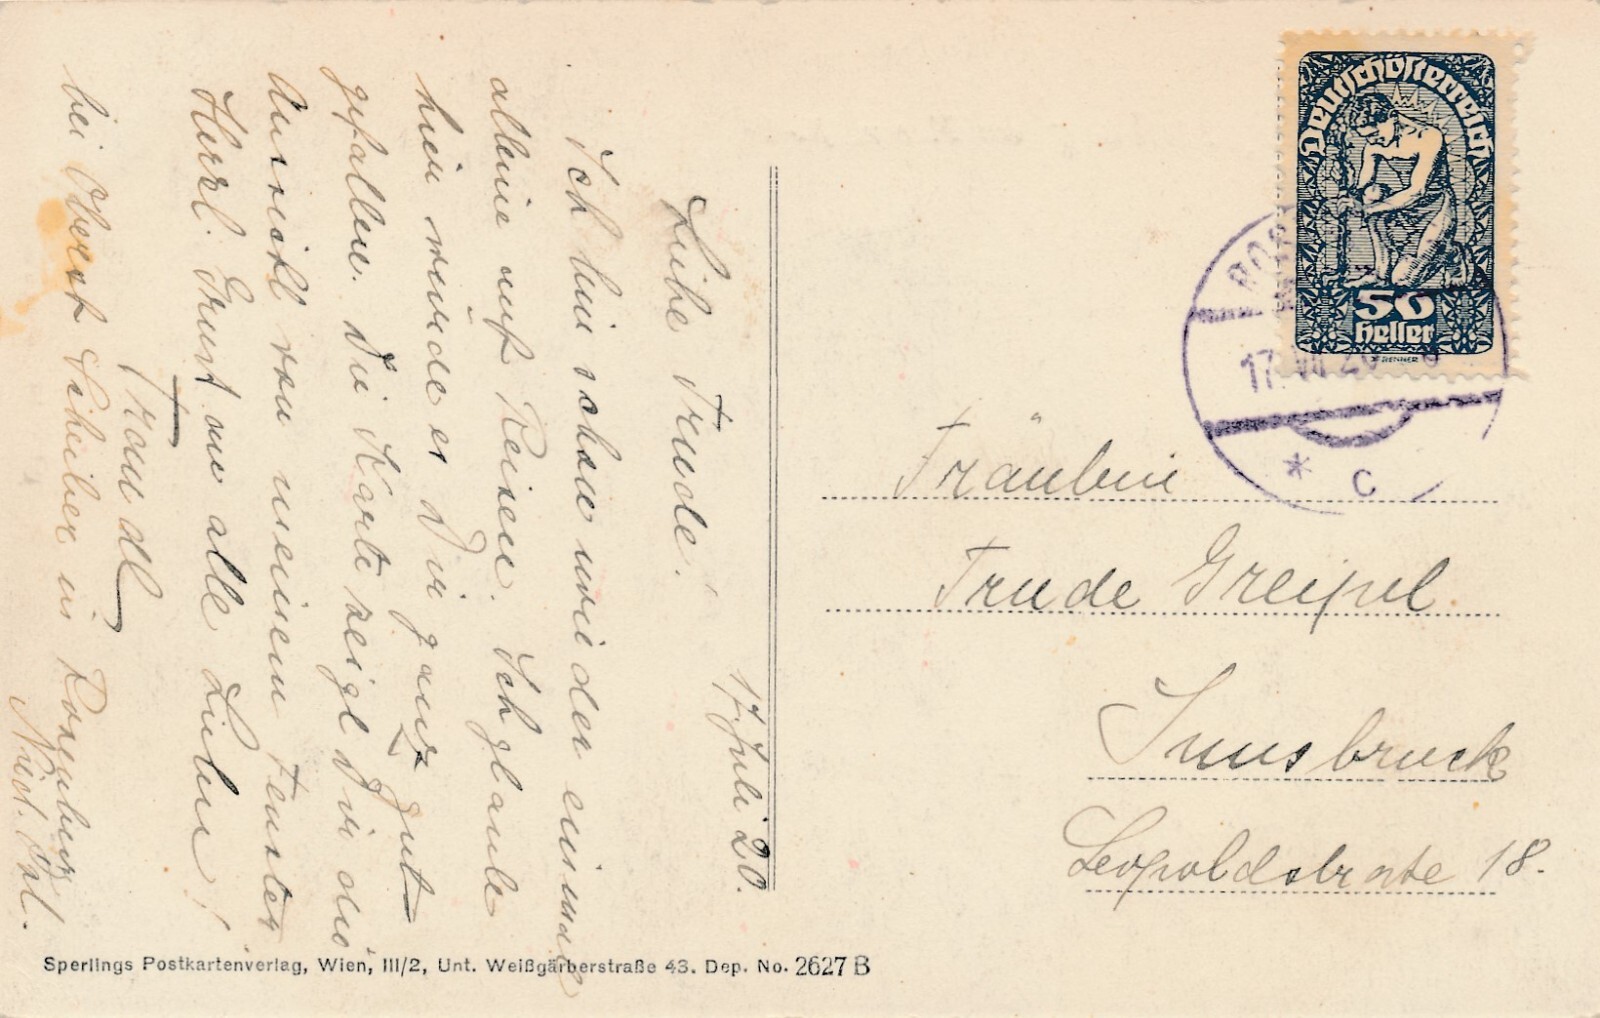 17. Juli 20.
Liebe Trude!
Ich bin schon wieder einmal
alleine auf Reisen. Ich glaube
hier würde es Dir ganz gut
gefallen. Die Karte zeigt Dir die
Aussicht von meinem Fenster
Herzl. Gruß an alle Lieben!
Traudl
bei Oberst Scheiber in Rosenburg
Nied. Öst.
Deutschösterreich
50
Heller
RENNER
17 VII 20
* c
Fräulein
Trude Greipel
Innsbruck
Leopoldstraße 18.
Sperlings Postkartenverlag, Wien, III/2, Unt. Weißgärberstraße 43. Dep. No. 2627 B